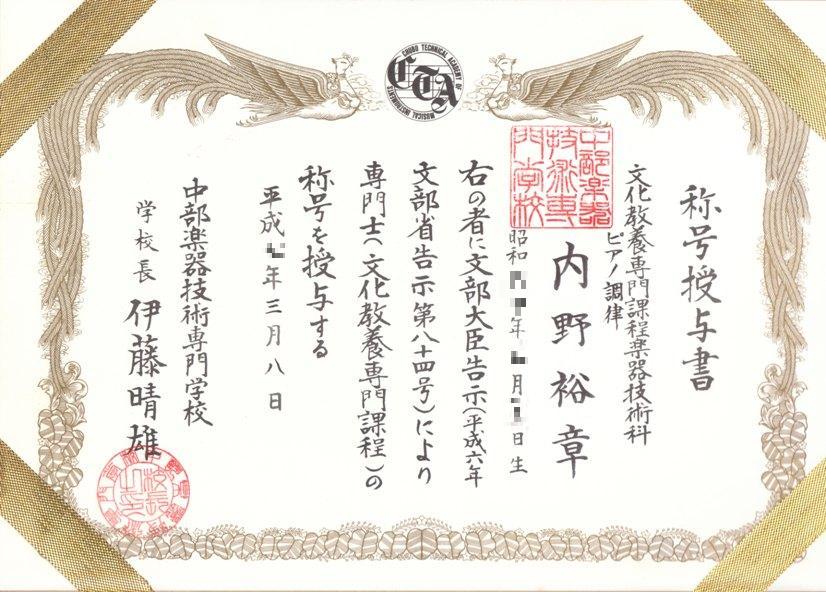 CHUBU TECHNICAL ACADEMY OF MUSICAL INSTRUMENTS
CTA
称号授与書
文化教養専門課程楽器技術科
ピアノ調律
中部楽器
技術専
門学校
内野裕章
昭和 年 月 日生
右の者に文部大臣告示(平成六年
文部省告示第八十四号)により
専門士(文化教養専門課程)の
称号を授与する
平成 年三月八日
中部楽器技術専門学校
学校長 伊藤晴雄